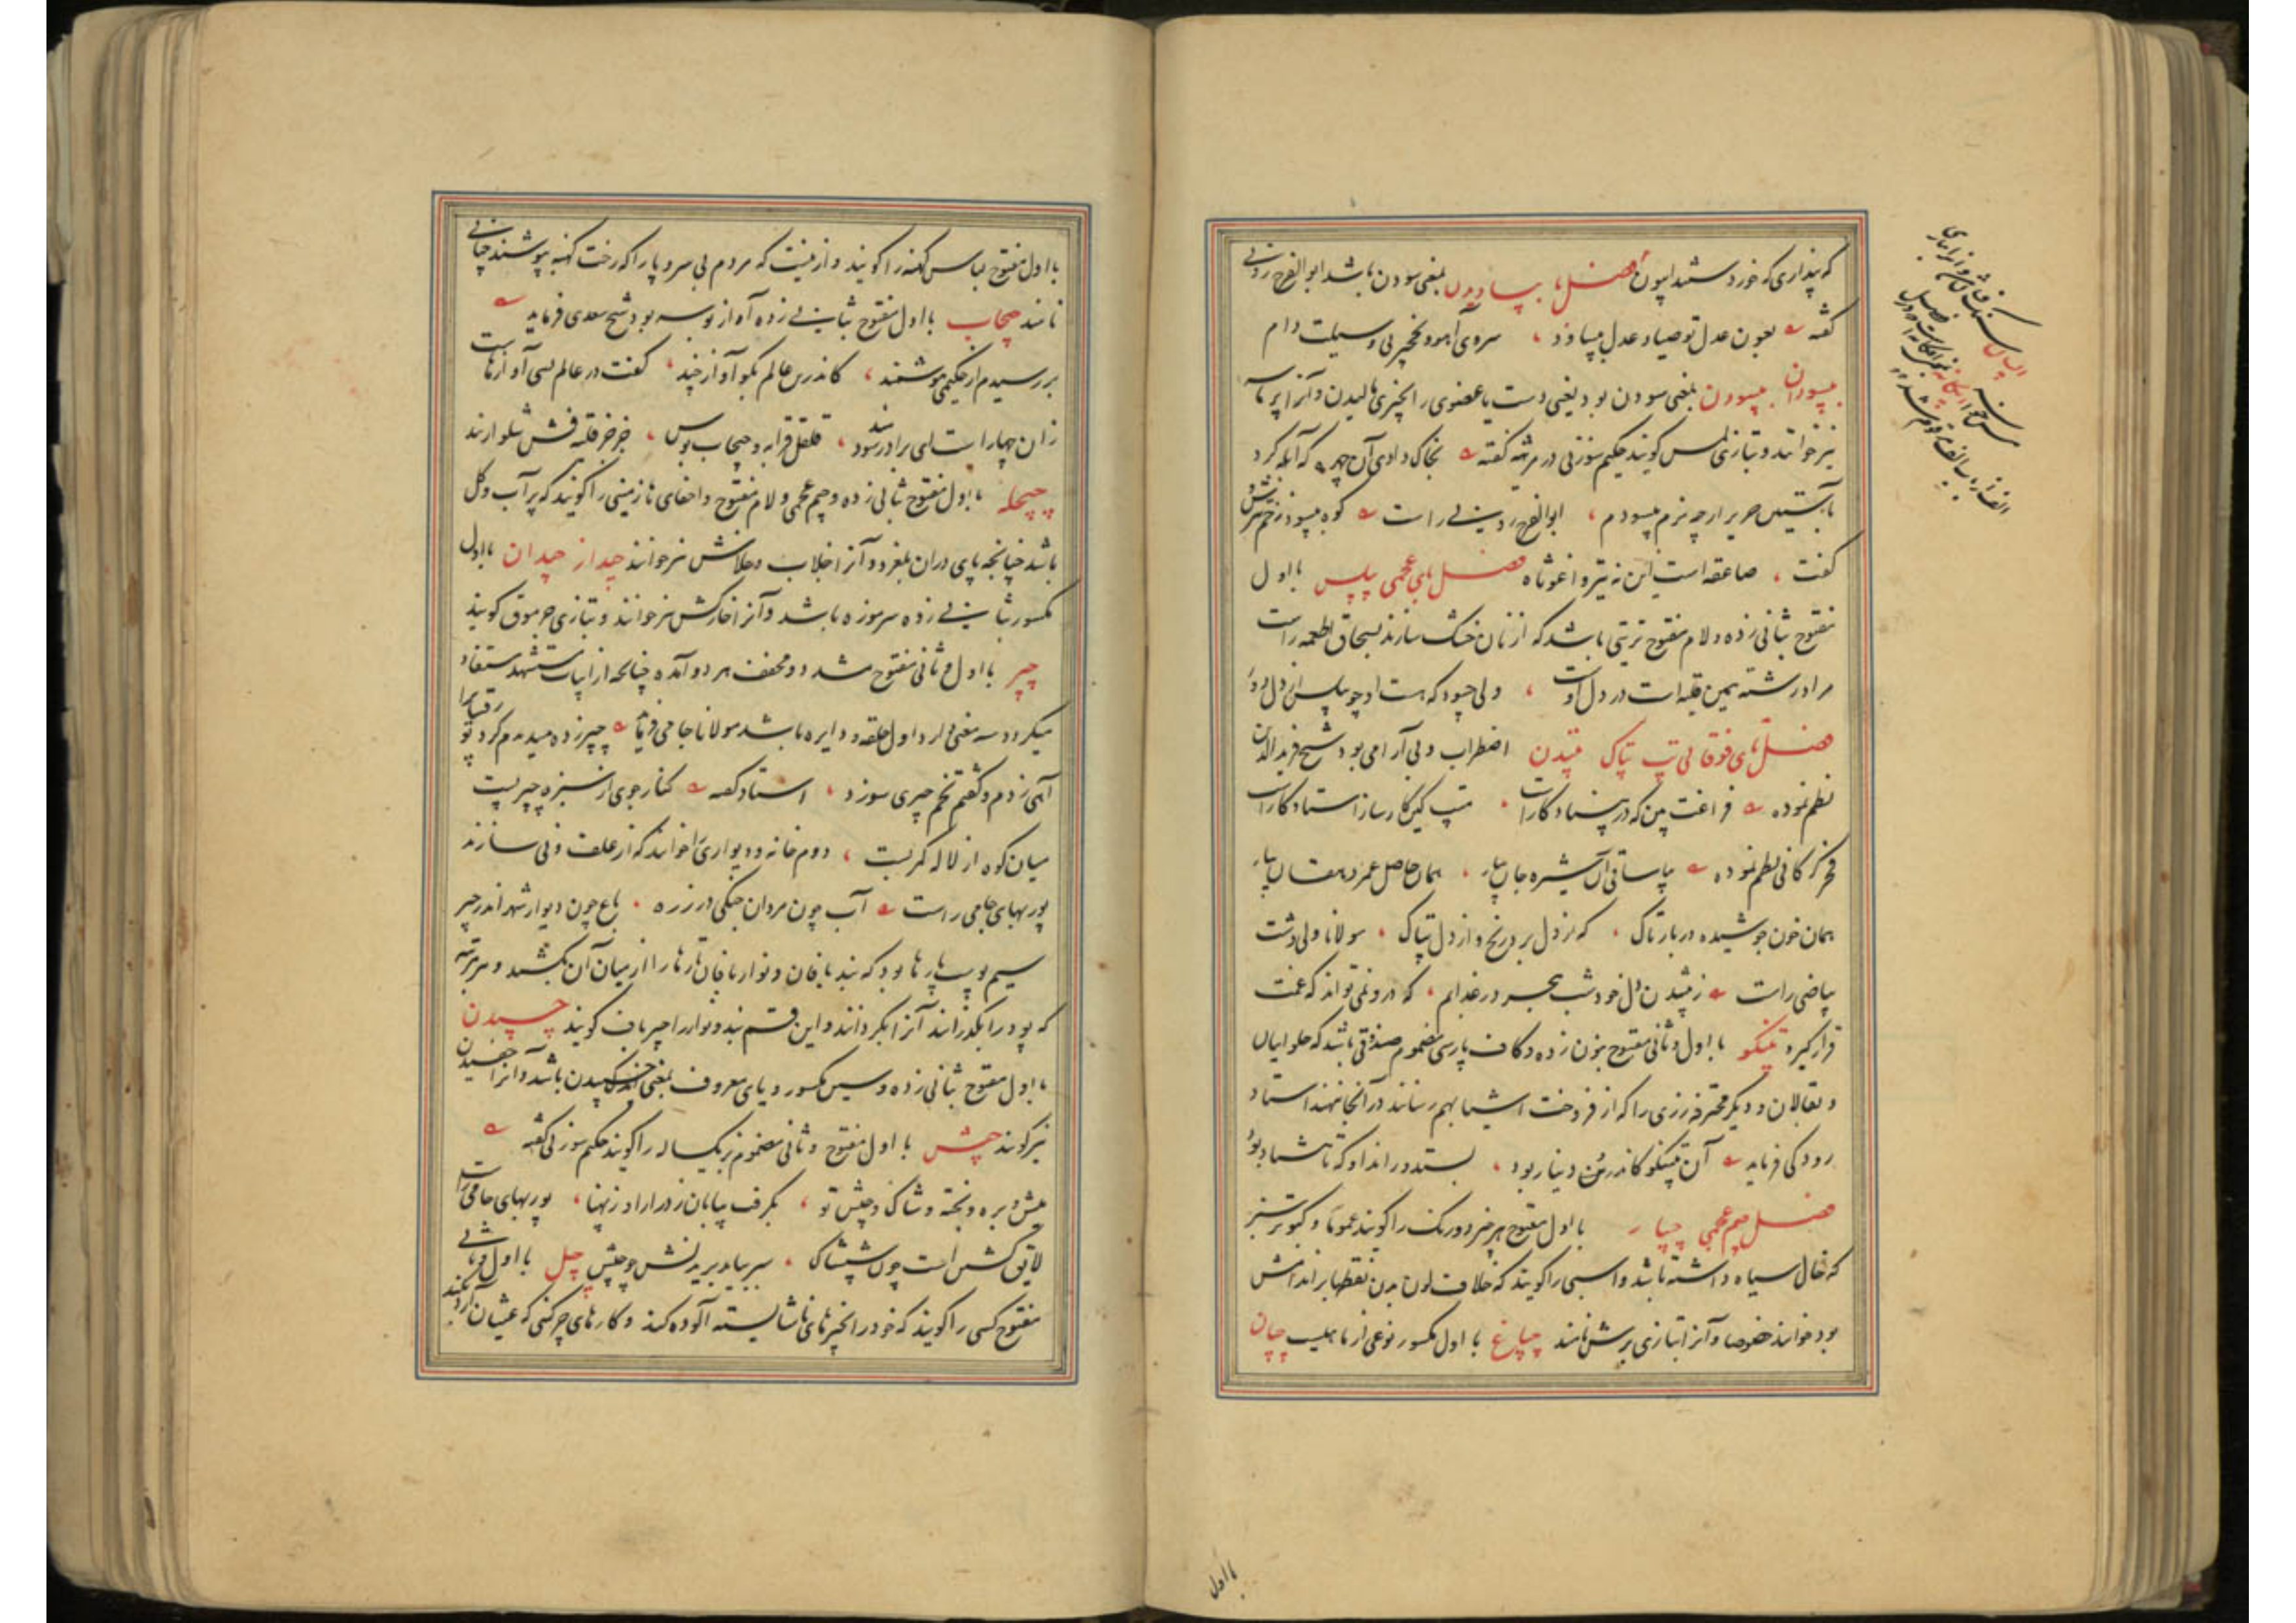 که پنداری که خورد ستند اپیون فصل با بپساویدن بمعنی سودن باشد ابوالفرج رونی
گفته بعون عدل تو صیاد عدل بپساود سروی آهو و نخچیر بی وسیلت دام
بپسودان بپسودن بمعنی سودن بود یعنی دست یا عضوی را بچیزی مالیدن و آنرا
نیز خوانند و بتازی لمس گویند حکیم سوزنی در مرثیه گفته بخاک دادی آن چهره که آبله کرد
بآستین حریر ارچه نرم بپسودم ابوالفرج رونی راست کوه بپسود زخم تیرش
گفت صاعقه است این نه تیر واغوثاه فصل بای عجمی پپلس با اول
مفتوح بثانی زده و لام مفتوح تریتی باشد که از نان خشک سازند بسحاق اطعمه راست
مرا در رشته یمین قلیه است در دل اوست ولی چسود که هست او چو پپلس از دل دور
فصل تای فوقانی تپ تپاک تپیدن اضطراب و بی آرامی بود شیخ فریدالدین
نظم نموده فراغت بین که در بنیاد کار است تپ کین کار ساز استاد کار است
فخر گرگانی نظم نموده بیا ساقی آن شیره جان بیار همان حاصل عمر دهقان بیار
همان خون جوشیده در بار تاک که از دل برد رنج و از دل تپاک مولانا ولی دشت
بیاضی راست ز تپیدن دل خود شب هجر در عذابم که درو نمی تواند که غمت
قرار گیرد تپنگو با اول و ثانی مفتوح بنون زده و کاف پارسی مضموم صندوقی باشد که حلوائیان
و بقالان و دیگر محترفه زری را که از فروخت اشیا بهم رسانند در آنجا نهند استاد
رودکی فرماید آن تپنگو کاندرین دینار بود بستد و ر اندا و که تا شاد بود
فصل جیم عجمی چپار با اول مفتوح هر چیز دو رنگ را گویند عموما و کبوتر سبز
که خال سیاه داشته باشد و اسبی را گویند که خلاف لون بدن نقطها بر اندامش
بود خوانند خصوصا و آنرا بتازی ابرش نامند چپاغ با اول مکسور نوعی از ماهیست چپان
با اول
با اول مفتوح لباس کهنه را گویند و ازینست که مردم بی سر و پا را که رخت کهنه پوشند چپانی
نامند چپچاپ با اول مفتوح بثانی زده آواز بوسه بود شیخ سعدی فرماید
بررسیدم از حکیمی هوشمند کاندرین عالم بگو آواز چند گفت در عالم بسی آوازهاست
زان چهار است ای برادر سودمند قلقل قرابه و چپچاپ بوس جز جز قلیه فش شلوار بند
چپچله با اول مفتوح بثانی زده و جیم عجمی و لام مفتوح و اخفای ها زمینی را گویند که پر آب و گل
باشد چنانچه پای دران بلغزد و آنرا خلاب و خلاش نیز خوانند چپدار چپدان با اول
مکسور بثانی زده سر موزه باشد و آنرا خارکش نیز خوانند و بتازی جرموق گویند
چپر با اول و ثانی مفتوح مشدد و مخفف هر دو آمده چنانچه از ابیات مستشهد مستفاد
میگردد سه معنی دارد اول حلقه و دایره باشد مولانا جامی فرماید چپر زده میدیدم گرد تو رقیبانرا
آهی زدم و گفتم تخم چپری سوزد استاد گفته کنار جوی از سبزه چپر بست
میان کوه از لاله کمر بست دوم خانه و دیواری را خوانند که از علف و نی سازند
پوربهای جامی راست آب چون مردان جنگی در زره باغ چون دیوار شهر اندر چپر
سیم چوب پارها بود که بند بافان و نوار بافان تارها را از میان آن بکشند و هر مرتبه
که پود را بگذرانند آنرا بگردانند و این قسم بند و نوار را چپرباف گویند چپسیدن
با اول مفتوح بثانی زده و سین مکسور و یای معروف بمعنی چسبیدن باشد و آنرا چفسیدن
نیز گویند چپش با اول مفتوح و ثانی مضموم بز یکساله را گویند حکیم سوزنی گفته
میش و بره و بخته و شاک و چپش تو بگرفت بیابان ز درازا و ز پهنا پوربهای جامی راست
لایق کشتن است چون شیشاک سر بباید بریدنش چو چپش چپل با اول و ثانی
مفتوح کسی را گویند که خود را بچیزهای ناشایسته آلوده کند و کارهای چرکنی که غثیان آرد بکند